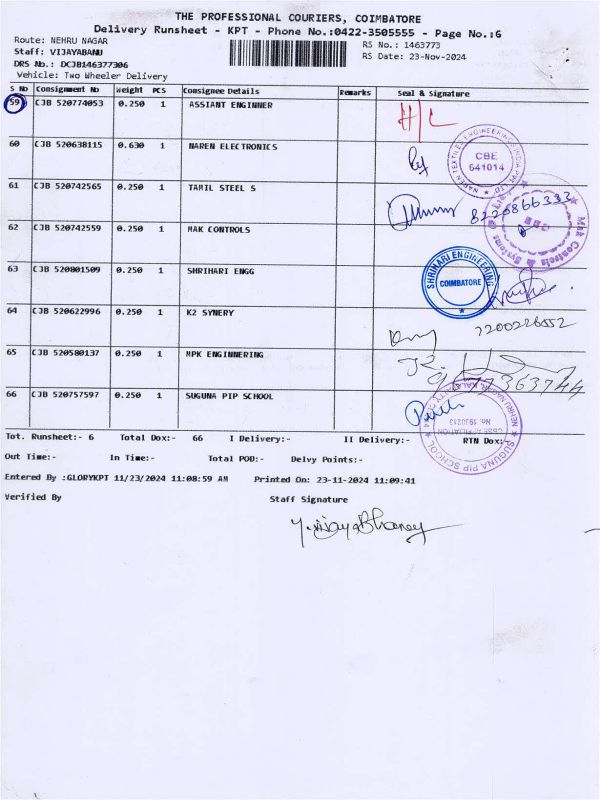 THE PROFESSIONAL COURIERS, COIMBATORE
Delivery Runsheet - KPT - Phone No.:0422-3505555 - Page No.:6
Route: NEHRU NAGAR RS No.: 1463773
Staff: VIJAYABANU RS Date: 23-Nov-2024
DRS No.: DCJB146377306
Vehicle: Two Wheeler Delivery
S No Consignment No Weight PCS Consignee Details Remarks Seal & Signature
59 CJB 520774053 0.250 1 ASSIANT ENGINNER H/L
60 CJB 520638115 0.630 1 NAREN ELECTRONICS
NAREN TEXTILES ENGINEERING INDIA PVT LTD
CBE
641014
61 CJB 520742565 0.250 1 TAMIL STEEL S 8220866333
62 CJB 520742559 0.250 1 MAK CONTROLS
Mak Controls & Systems
63 CJB 520801509 0.250 1 SHRIHARI ENGG
SHRIHARI ENGINEERING
COIMBATORE
64 CJB 520622996 0.250 1 K2 SYNERY 7200226552
65 CJB 520580137 0.250 1 MPK ENGINNERING
66 CJB 520757597 0.250 1 SUGUNA PIP SCHOOL
SUGUNA PIP SCHOOL
CBSE AFFILIATION
No. 1930213
Tot. Runsheet:- 6 Total Dox:- 66 I Delivery:- II Delivery:- RTN Dox:-
Out Time:- In Time:- Total POD:- Delvy Points:-
Entered By :GLORYKPT 11/23/2024 11:08:59 AM Printed On: 23-11-2024 11:09:41
Verified By Staff Signature